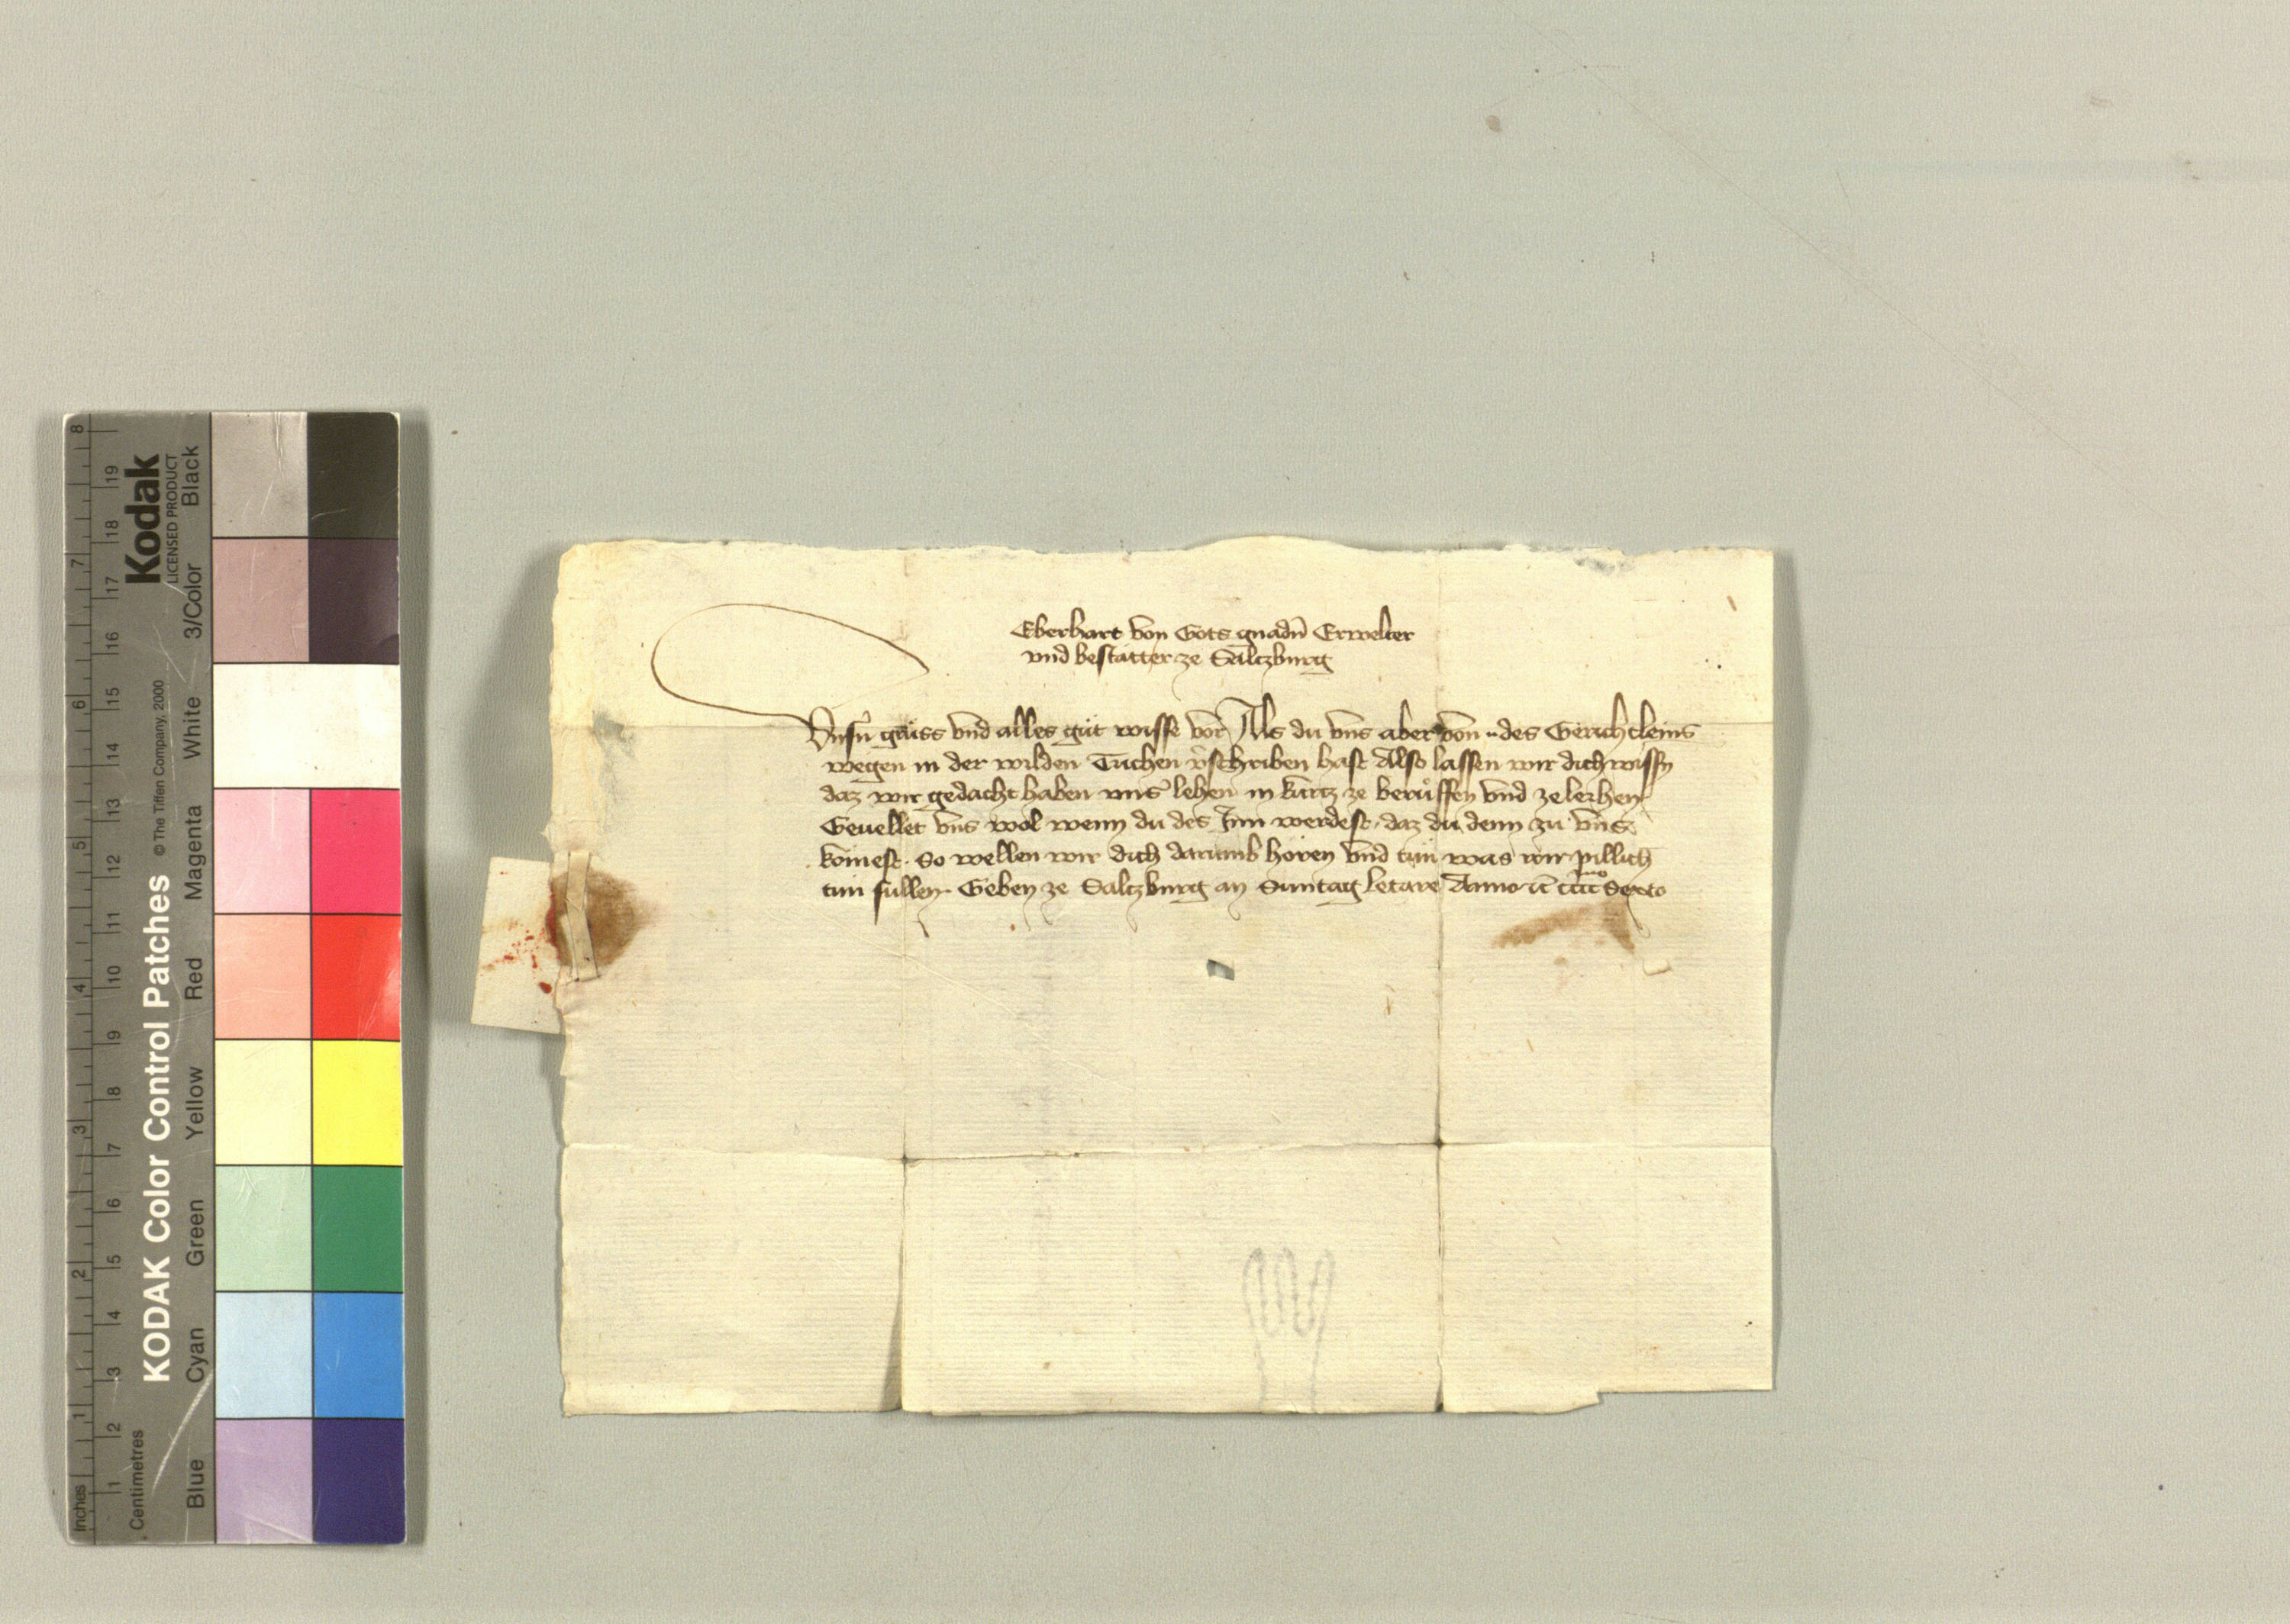 Eberhart von Gots gnadn̄ Erwelter
vnd bestätter ze Salczburg
Vnsn̄ grüss vnd alles güt wisse vor Als du vns aber von des Gerichtleins
wegen in der wilden Tuchen v̄schriben hast Also lassen wir dich wissn
daz wir gedacht haben vnns̄ lehen in kurtz ze berüffen vnd ze leihen
Geuellet vns wol wenn du des Inn werdest, daz du denn zu vns
komest. So wellen wir dich darumb hören vnd tün was wir pillich
tün sullen. Geben ze Salczburg an Suntag letare Anno cccc̄ Sexto
8
7
6
5
4
3
2
1
Inches
19
18
17
16
15
14
13
12
11
10
9
8
7
6
5
4
3
2
1
Centimetres
Kodak
LICENSED PRODUCT
KODAK Color Control Patches © The Tiffen Company, 2000
Blue
Cyan
Green
Yellow
Red
Magenta
White
3/Color
Black